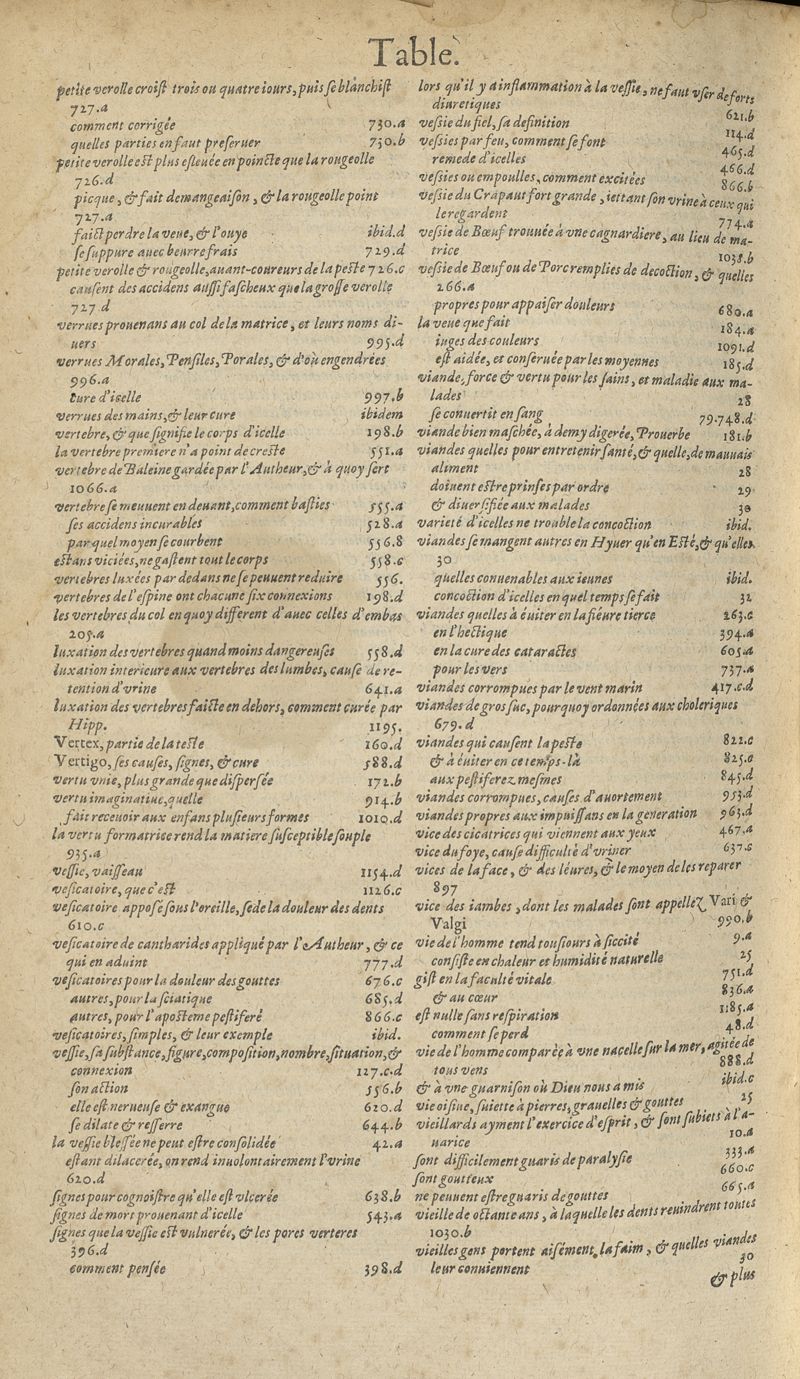 Table.
petite verolle croiſt trois ou quatre iours, puis ſe blanchiſt
727.a
comment corrigée 730.a
quelles parties en faut preſeruer 730.b
petite verolle eſt plus eſleuée en poincte que la rougeolle
726.d
picque, & fait demangeaiſon, & la rougeolle point
727.a
faict perdre la veue, & l'ouye ibid.d
ſe ſuppure auec beurre frais 729.d
petite verolle & rougeolle, auant-coureurs de la peſte 726.c
cauſent des accidens auſſi faſcheux que la groſſe verolle
727.d
verrues prouenans au col de la matrice, et leurs noms di-
uers 995.d
verrues Morales, Penſiles, Porales, & d'où engendrées
996.a
cure d'icelle 997.b
verrues des mains, & leur cure ibidem
vertebre, & que ſignifie le corps d'icelle 198.b
la vertebre premiere n'a point de creſte 551.a
vertebre de Baleine gardée par l'Autheur, & à quoy ſert
1066.a
vertebre ſe meuuent en deuant, comment baſties 555.a
ſes accidens incurables 528.a
par quel moyen ſe courbent 556.8
eſtans viciées, ne gaſtent tout le corps 558.c
vertebres luxées par dedans ne ſe peuuent reduire 556.
vertebres de l'eſpine ont chacune ſix connexions 198.d
les vertebres du col en quoy different d'auec celles d'embas
205.a
luxation des vertebres quand moins dangereuſes 558.d
luxation interieure aux vertebres des lumbes, cauſe de re-
tention d'vrine 641.a
luxation des vertebres faicte en dehors, comment curée par
Hipp. 1195.
Vertex, partie de la teſte 160.d
Vertigo, ſes cauſes, ſignes, & cure 588.d
vertu vnie, plus grande que diſperſée 172.b
vertu imaginatiue, quelle 914.b
fait receuoir aux enfans pluſieurs formes 1010.d
la vertu formatrice rend la matiere ſuſceptible ſouple
935.a
veſſie, vaiſſeau 1154.d
veſicatoire, que c'eſt 1126.c
veſicatoire appoſé ſous l'oreille, ſede la douleur des dents
610.c
veſicatoire de cantharides appliqué par l'Autheur, & ce
qui en aduint 777.d
veſicatoires pour la douleur des gouttes 676.c
autres, pour la ſciatique 685.d
autres, pour l'apoſteme peſtiferé 866.c
veſicatoires, ſimples, & leur exemple ibid.
veſſie, ſa ſubſtance, figure, compoſition, nombre, ſituation, &
connexion 127.c.d
ſon action 556.b
elle eſt nerueuſe & exangue 620.d
ſe dilate & reſſerre 644.b
la veſſie bleſſée ne peut eſtre conſolidée 42.a
eſtant dilacerée, on rend inuolontairement l'vrine
620.d
ſignes pour cognoiſtre qu'elle eſt vlcerée 638.b
ſignes de mort prouenant d'icelle 543.a
ſignes que la veſſie eſt vulnerée, & les pores verteres
396.d
comment penſée 398.d
lors qu'il y a inflammation à la veſſie, ne faut vſer de forts
diuretiques 621.b
veſſie du fiel, ſa definition 114.d
veſſies par feu, comment ſe font 465.d
remede d'icelles 466.d
veſſies ou empoulles, comment excitées 866.b
veſſie du Crapaut fort grande, iettant ſon vrine à ceux qui
le regardent 774.a
veſſie de Bœuf trouuée à vne cagnardiere, au lieu de ma-
trice 1038.b
veſſie de Bœuf ou de Porc remplies de decoction, & quelles
266.a
propres pour appaiſer douleurs 680.a
la veue que fait 184.a
iuges des couleurs 1091.d
eſt aidée, et conſeruée par les moyennes 185.d
viande, force & vertu pour les ſains, et maladie aux ma-
lades 28
ſe conuertit en ſang 79.748.d
viande bien maſchée, à demy digerée, Prouerbe 181.b
viandes quelles pour entretenir ſanté, & quelle, de mauuais
aliment 28
doiuent eſtre prinſes par ordre 29
& diuerſifiée aux malades 30
varieté d'icelles ne trouble la concoction ibid.
viandes ſe mangent autres en Hyuer qu'en Eſté, & qu'elles
30
quelles conuenables aux ieunes ibid.
concoction d'icelles en quel temps ſe fait 32
viandes quelles à éuiter en la fiéure tierce 263.c
en l'hectique 394.a
en la cure des cataractes 605.a
pour les vers 737.a
viandes corrompues par le vent marin 417.c.d
viandes de gros ſuc, pourquoy ordonnées aux choleriques
679.d
viandes qui cauſent la peſte 822.c
& à éuiter en ce temps-là 825.c
aux peſtiferez meſmes 845.d
viandes corrompues, cauſes d'auortement 953.d
viandes propres aux impuiſſans en la generation 963.d
vice des cicatrices qui viennent aux yeux 467.a
vice du foye, cauſe difficulté d'vriner 637.c
vices de la face, & des léures, & le moyen de les reparer
897
vice des iambes, dont les malades ſont appellez Vari &
Valgi 990.b
vie de l'homme tend touſiours à ſiccité 9.a
conſiſte en chaleur et humidité naturelle 25
giſt en la faculté vitale 751.d
& au cœur 836.a
eſt nulle ſans reſpiration 1185.a
comment ſe perd 48.d
vie de l'homme comparée à vne nacelle ſur la mer, agitée de
tous vens 888.d
& à vne guarniſon où Dieu nous a mis ibid.c
vie oiſiue, ſuiette à pierres, grauelles & gouttes 25
vieillards ayment l'exercice d'eſprit, & ſont ſubiets à l'a-
uarice 10.a
ſont difficilement guaris de paralyſie 333.a
ſont goutteux 660.c
ne peuuent eſtre guaris de gouttes 665.a
vieille de octante ans, à laquelle les dents reuindrent toutes
1030.b
vieilles gens portent aiſément la faim, & quelles viandes
leur conuiennent 30
& plus